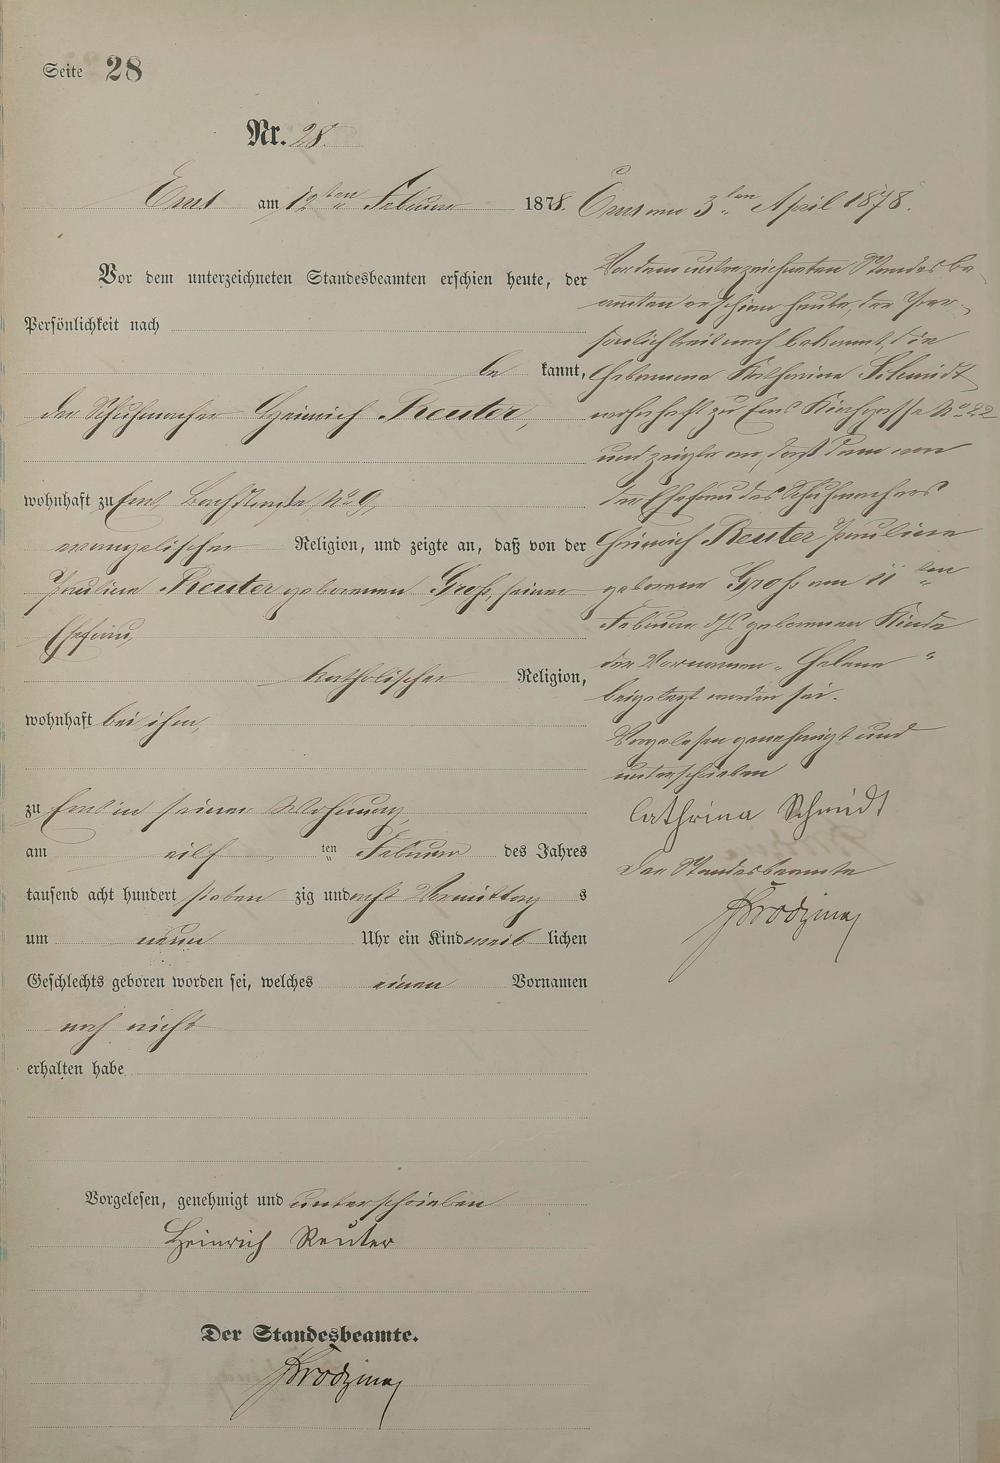 Seite 28
Nr. 28.
Ems am 12ten Februar 1878.
Vor dem unterzeichneten Standesbeamten erschien heute, der
Persönlichkeit nach
be kannt,
der Schuhmacher Heinrich Reuter,
wohnhaft zu Ems, Bachstraße No 9,
evangelischer Religion, und zeigte an, daß von der
Pauline Reuter geborenen Groß, seiner
Ehefrau,
katholischer Religion,
wohnhaft bei ihm,
zu Ems in seiner Wohnung
am eilf ten Februar des Jahres
tausend acht hundert sieben zig und acht Vormittag s
um neun Uhr ein Kind weib lichen
Geschlechts geboren worden sei, welches einen Vornamen
noch nicht
erhalten habe
Vorgelesen, genehmigt und unterschrieben
Heinrich Reuter
Der Standesbeamte.
Ems am 3ten April 1878.
Vor dem unterzeichneten Standesbe-
amten erschien heute, der Per-
sönlichkeit nach bekannt, die
Hebamme Katharina Schmidt
wohnhaft zu Ems Kirchgasse No 22
und zeigte an, daß dem von
der Ehefrau des Schuhmachers
Heinrich Reuter Pauline
geborene Groß am 11ten
Februar d. Js. geborenen Kinde
der Vornamen „Helene“
beigelegt worden sei.
Vorgelesen genehmigt und
unterschrieben
Cathrina Schmidt
Der Standesbeamte